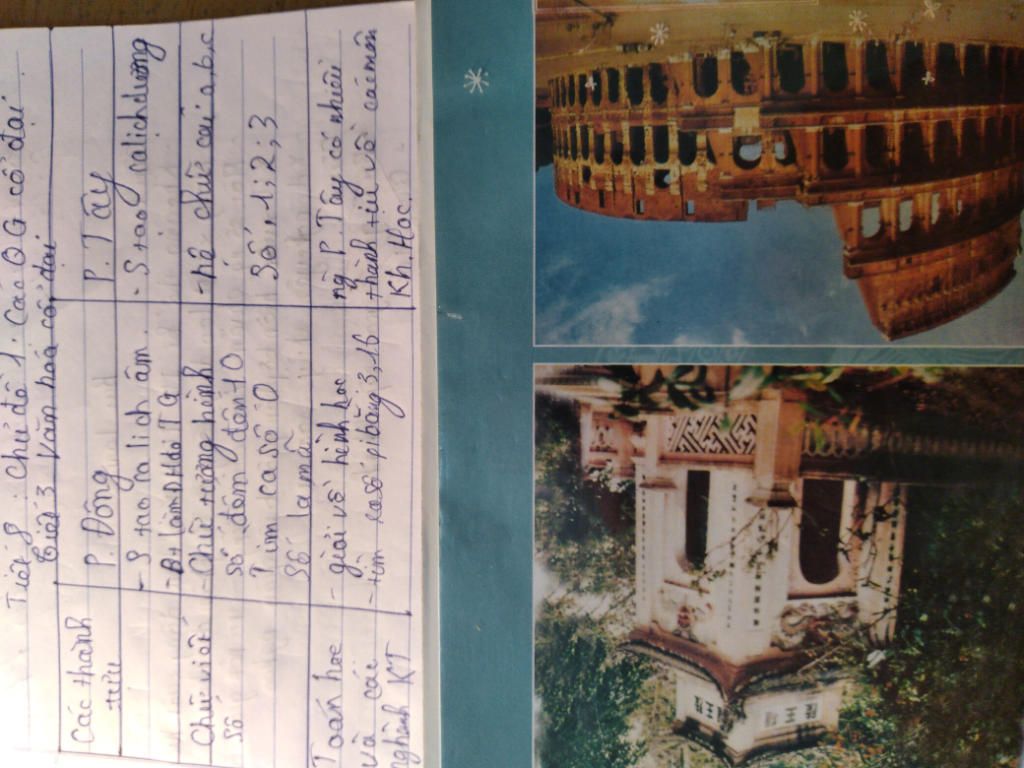 Tiết 8: Chủ đề 1. Các QG cổ đại.
Tiết 3 Văn hoá cổ đại
Các thành tựu
P. Đông
P. Tây
- S tạo ra lịch âm.
- S tạo ra lịch dương
làm ĐHđo TG
Chữ viết
số
- Chữ tượng hình
Số đếm đến 10
Tìm ra số 0
Số la mã
- hệ chữ cái a,b,c
Số 1;2;3
Toán học
và các
ngành KT
- giỏi về hình học
- tìm ra số pi bằng 3,16
ng P Tây có nhiều
thành tựu về các môn
Kh. Học